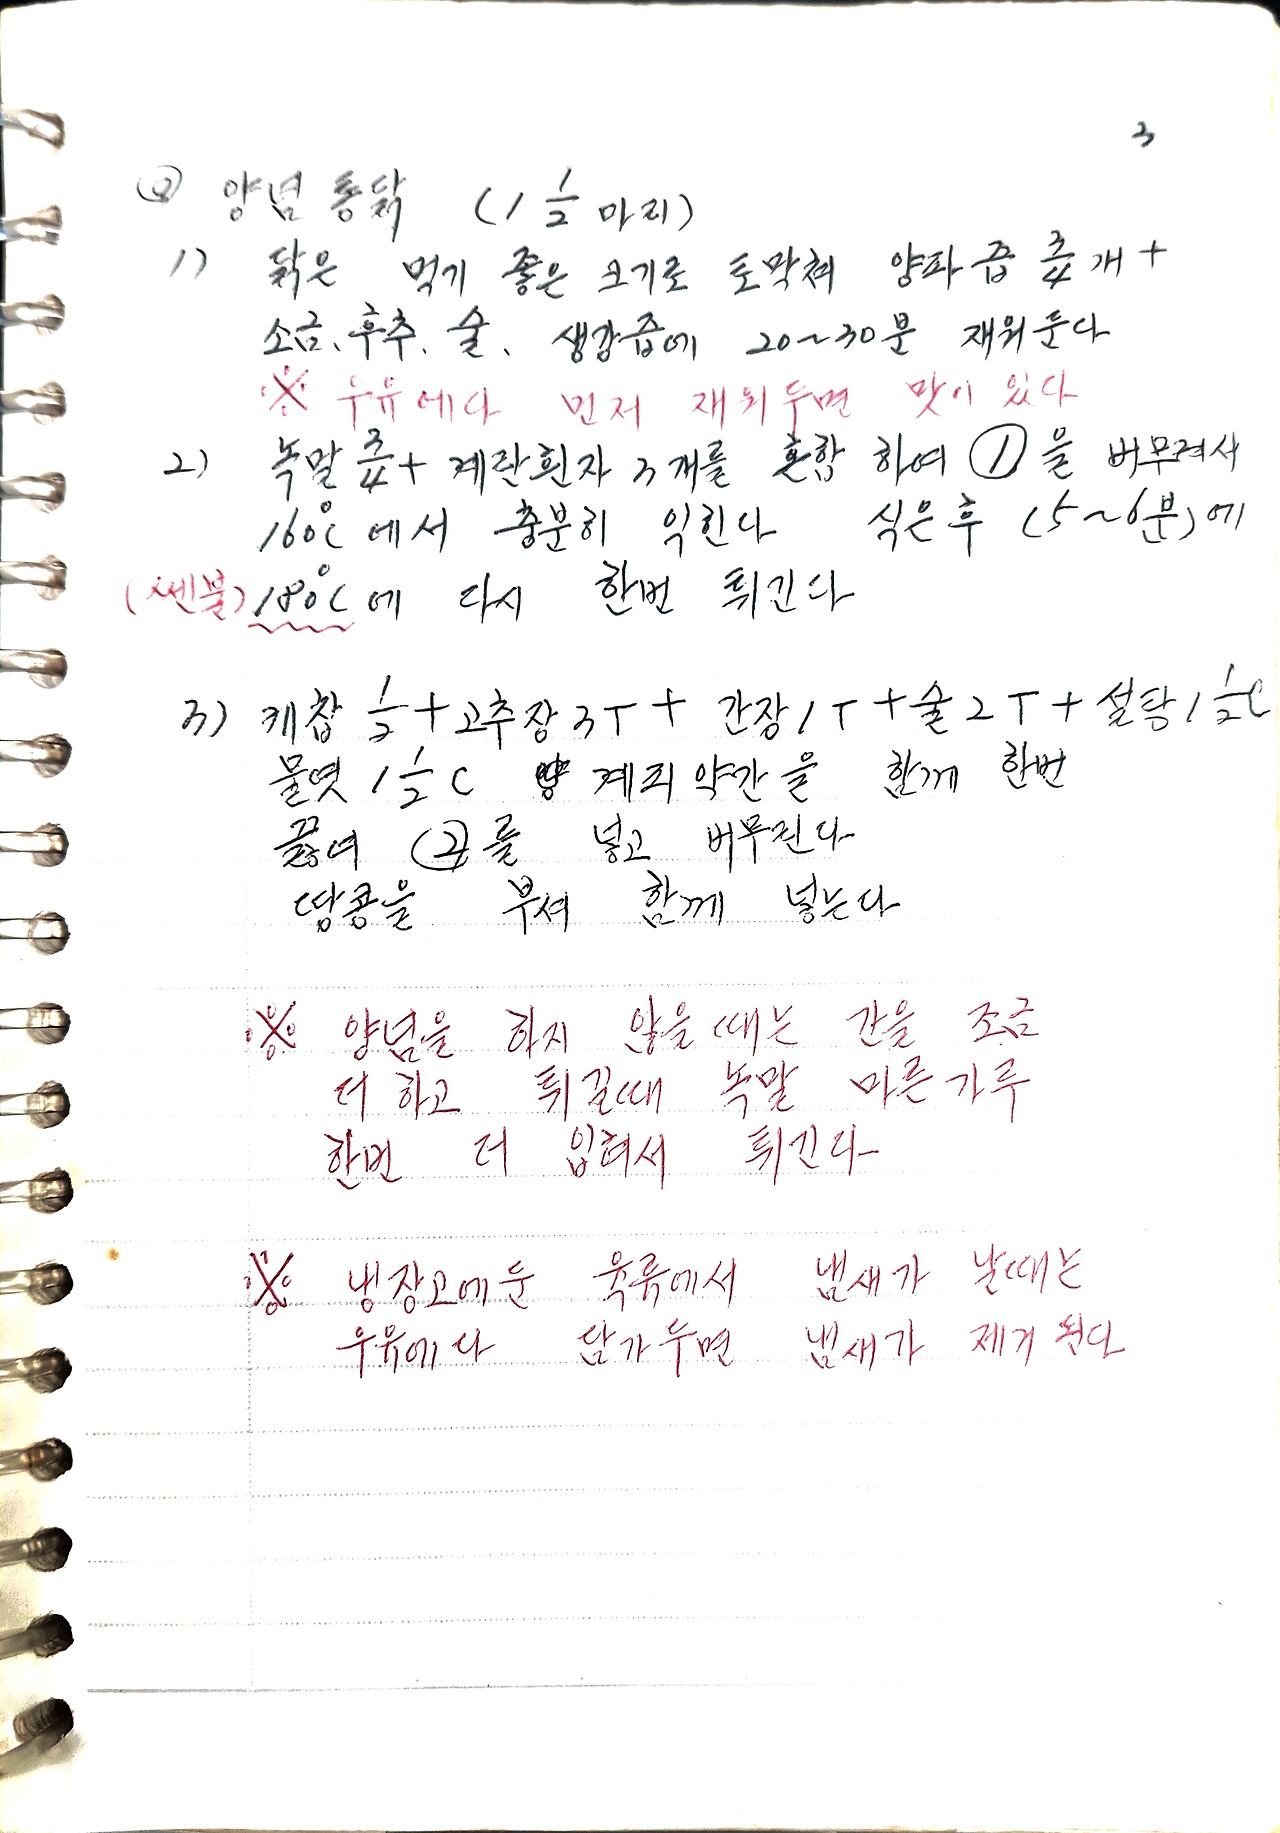 3
② 양념통닭 (1 1/2 마리)
1) 닭은 먹기 좋은 크기로 토막쳐 양파즙 3/4개 +
소금、후추、술、생강즙에 20~30분 재워둔다
※ 우유에다 먼저 재워두면 맛이 있다
2) 녹말 3/4 + 계란흰자 3개를 혼합 하여 ①을 버무려서
160℃에서 충분히 익힌다 식은후 (5~6분)에
(쎈불) 180℃에 다시 한번 튀긴다
3) 케찹 1/2 + 고추장 3T + 간장 1T + 술 2T + 설탕 1 1/2C
물엿 1 1/2 C 계피약간을 함께 한번
끓여 ②를 넣고 버무린다
땅콩을 부셔 함께 넣는다
※ 양념을 하지 않을때는 간을 조금
더하고 튀길때 녹말 마른가루
한번 더 입혀서 튀긴다
※ 냉장고에둔 육류에서 냄새가 날때는
우유에다 담가두면 냄새가 제거 된다